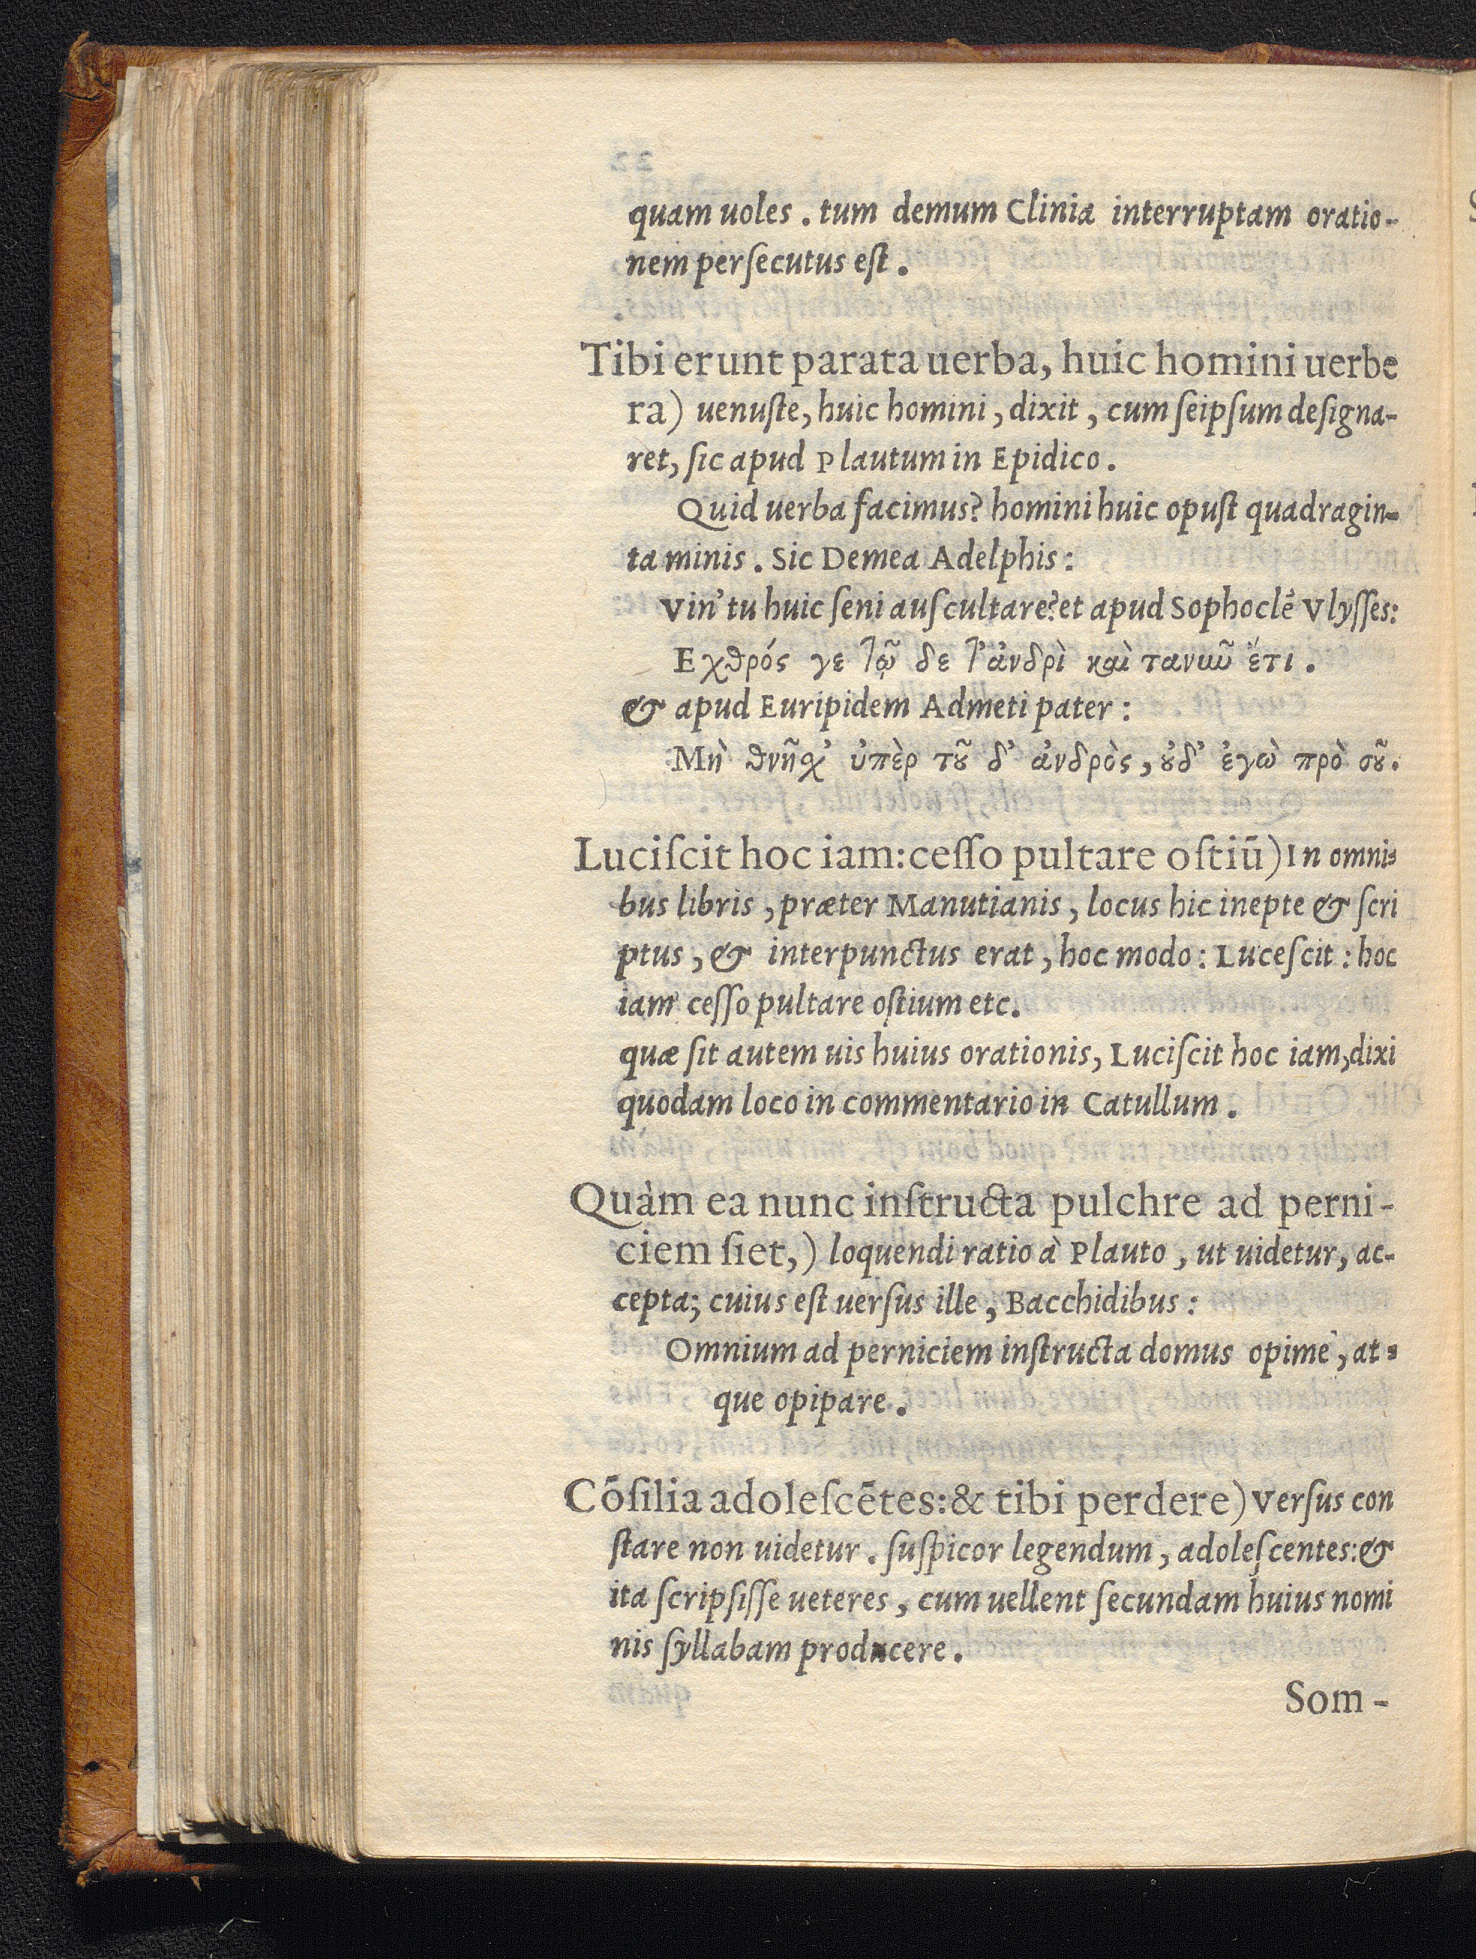 quam uoles . tum demum Clinia interruptam oratio-
nem perſecutus eſt .
Tibi erunt parata uerba, huic homini uerbe
ra) uenuſte, huic homini , dixit , cum ſeipſum deſigna-
ret, ſic apud Plautum in Epidico .
Quid uerba facimus? homini huic opuſt quadragin-
ta minis . Sic Demea Adelphis :
Vin' tu huic ſeni auſcultare? et apud Sophoclē Vlyſſes:
Εχθρός γε τῷ δε τ' ἀνδρὶ καὶ τανυῦ ἔτι .
& apud Euripidem Admeti pater :
Μὴ θνῆσχ' ὑπὲρ τοῦ δ' ἀνδρὸς, οὐδ' ἐγὼ πρὸ σοῦ.
Luciſcit hoc iam: ceſſo pultare oſtiū) In omni-
bus libris , præter Manutianis , locus hic inepte & ſcri
ptus , & interpunctus erat , hoc modo : Luceſcit : hoc
iam ceſſo pultare oſtium etc.
quæ ſit autem uis huius orationis, Luciſcit hoc iam, dixi
quodam loco in commentario in Catullum .
Quàm ea nunc inſtructa pulchre ad perni-
ciem ſiet,) loquendi ratio à Plauto , ut uidetur, ac-
cepta; cuius eſt uerſus ille , Bacchidibus :
Omnium ad perniciem inſtructa domus opimè , at-
que opipare .
Cōſilia adoleſcētes: & tibi perdere) Verſus con
ſtare non uidetur . ſuſpicor legendum , adoleſcentes: &
ita ſcripſiſſe ueteres , cum uellent ſecundam huius nomi
nis ſyllabam producere .
Som-